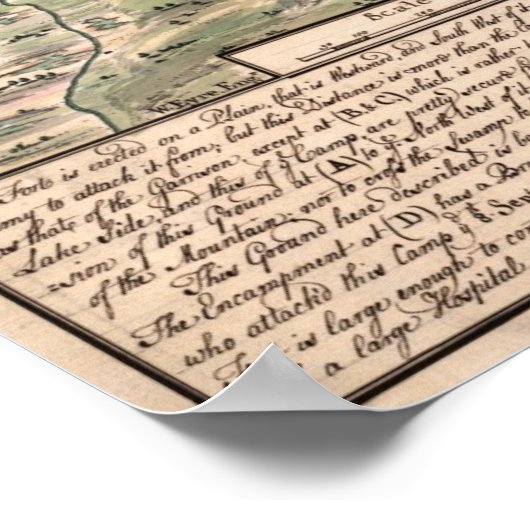 Scale
W. Eyre Engr.
Fort is erected on a Plain, that is Westward, and South West of
my to attack it from; but this Distance is more than the
as that of the Garrison, except at (B & C) which is rather
Lake Side, and this of ye Camp, are pretty secure
sion of this Ground at (A) to ye North West of
of the Mountain; nor to cross the Swamp
This Ground here described is
The Encampment at (D) has a
who attack'd this Camp ye 8 Se
is large enough to con
a large Hospital